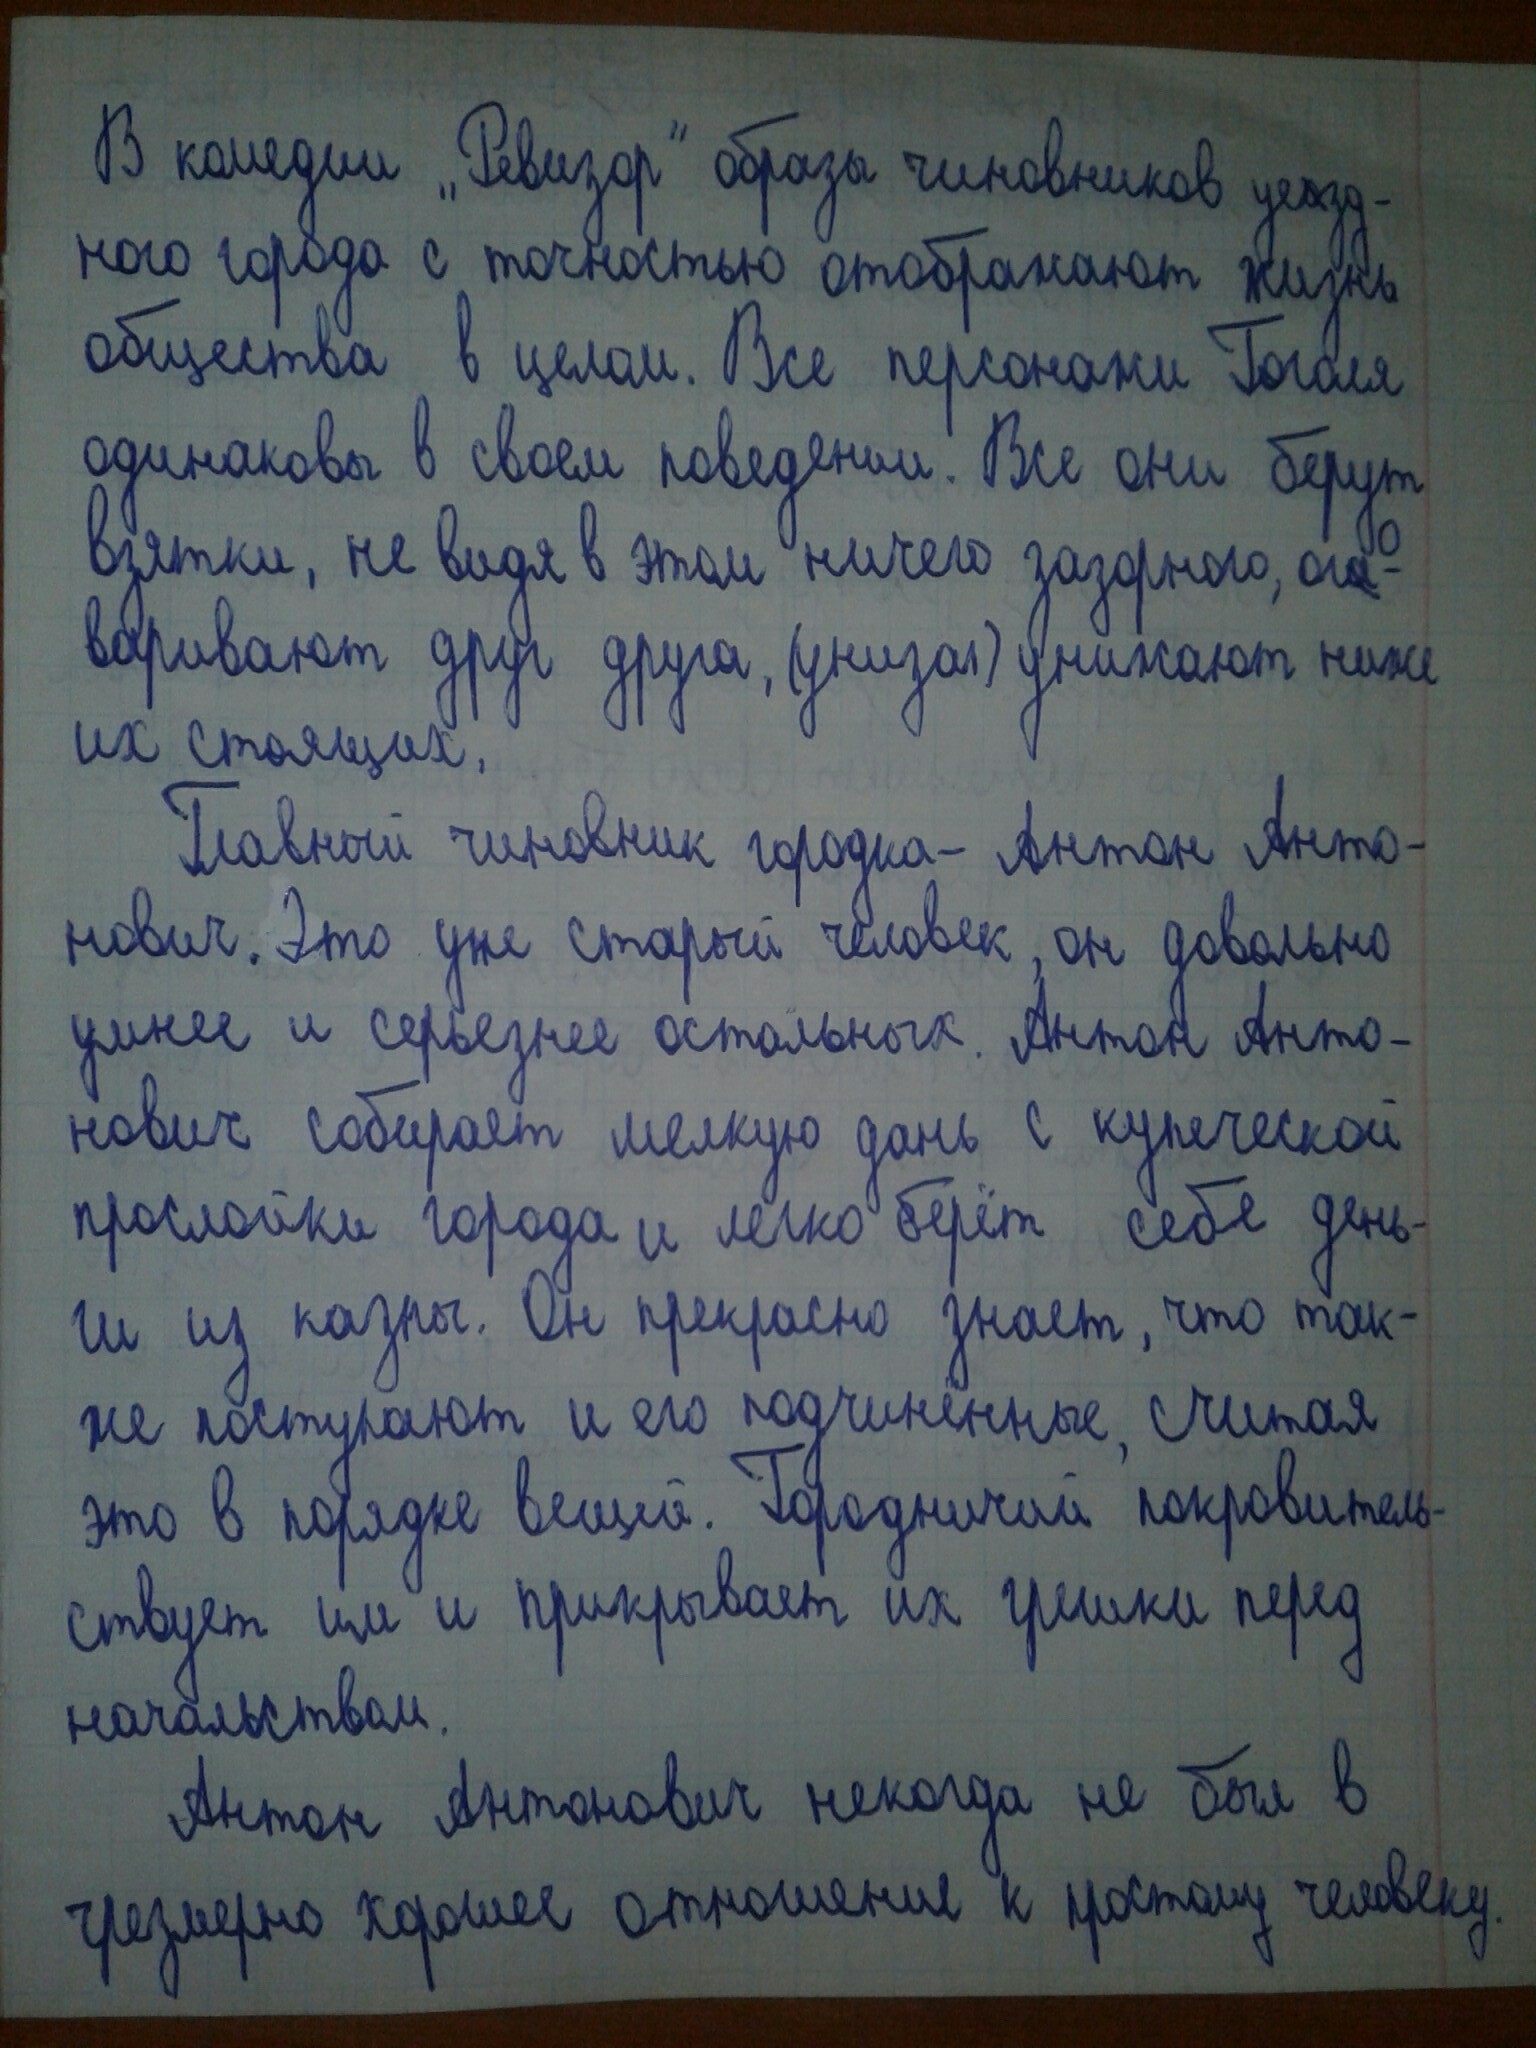 В комедии „Ревизор" образы чиновников уезд-
ного города с точностью отображают жизнь
общества в целом. Все персонажи Гоголя
одинаковы в своем поведении. Все они берут
взятки, не видя в этом ничего зазорного, ого-
варивают друг друга, (унизат) унижают ниже
их стоящих.
Главный чиновник городка- Антон Анто-
нович. Это уже старый человек, он довольно
умнее и серьезнее остальных. Антон Анто-
нович собирает мелкую дань с купеческой
прослойки города и легко берёт себе день-
ги из казны. Он прекрасно знает, что так-
же поступают и его подчинённые, считая
это в порядке вещей. Городничий покровитель-
ствует им и прикрывает их грешки перед
начальством.
Антон Антонович некогда не был в
чрезмерно хорошее отношение к простому человеку.